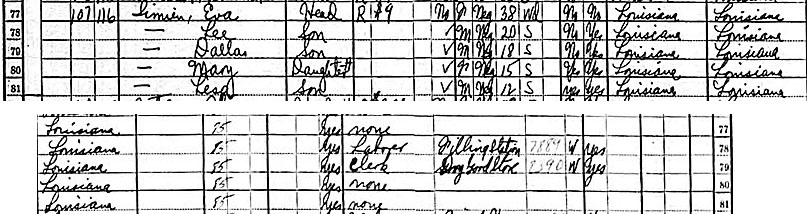 77 107 116 Simien, Eva Head R $9 No F Neg 38 Wd No No Louisiana Louisiana
78 — Lee Son V M Neg 20 S No Yes Louisiana Louisiana
79 — Dallas Son V M Neg 18 S No Yes Louisiana Louisiana
80 — Mary Daughter V F Neg 15 S Yes Yes Louisiana Louisiana
81 — Son V M Neg 12 S yes Yes Louisiana Louisiana
Louisiana 85 Yes none 77
Louisiana 85 Yes Laborer Filling Station W yes 78
Louisiana 85 Yes Clerk Dry Good Store W Yes 79
Louisiana 85 Yes none 80
Louisiana 85 Yes none 81